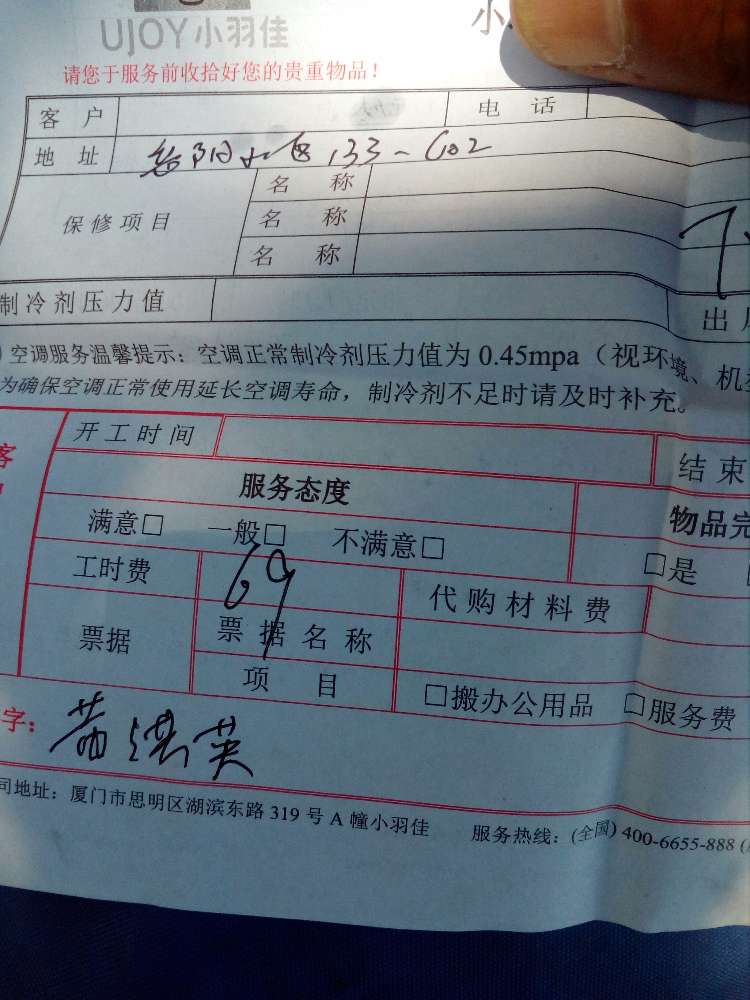 UJOY小羽佳
小
请您于服务前收拾好您的贵重物品！
客 户 电 话
地 址 岳阳小区 133-602
保修项目 名 称
名 称
名 称
制冷剂压力值 出
空调服务温馨提示：空调正常制冷剂压力值为 0.45mpa（视环境、机
为确保空调正常使用延长空调寿命，制冷剂不足时请及时补充。
客
开工时间 结束
服务态度 物品完
满意□ 一般□ 不满意□ □是
工时费 69 代购材料费
票据 票据名称
项 目 □搬办公用品 □服务费
字： 英
司地址：厦门市思明区湖滨东路 319 号 A 幢小羽佳 服务热线：(全国) 400-6655-888 (